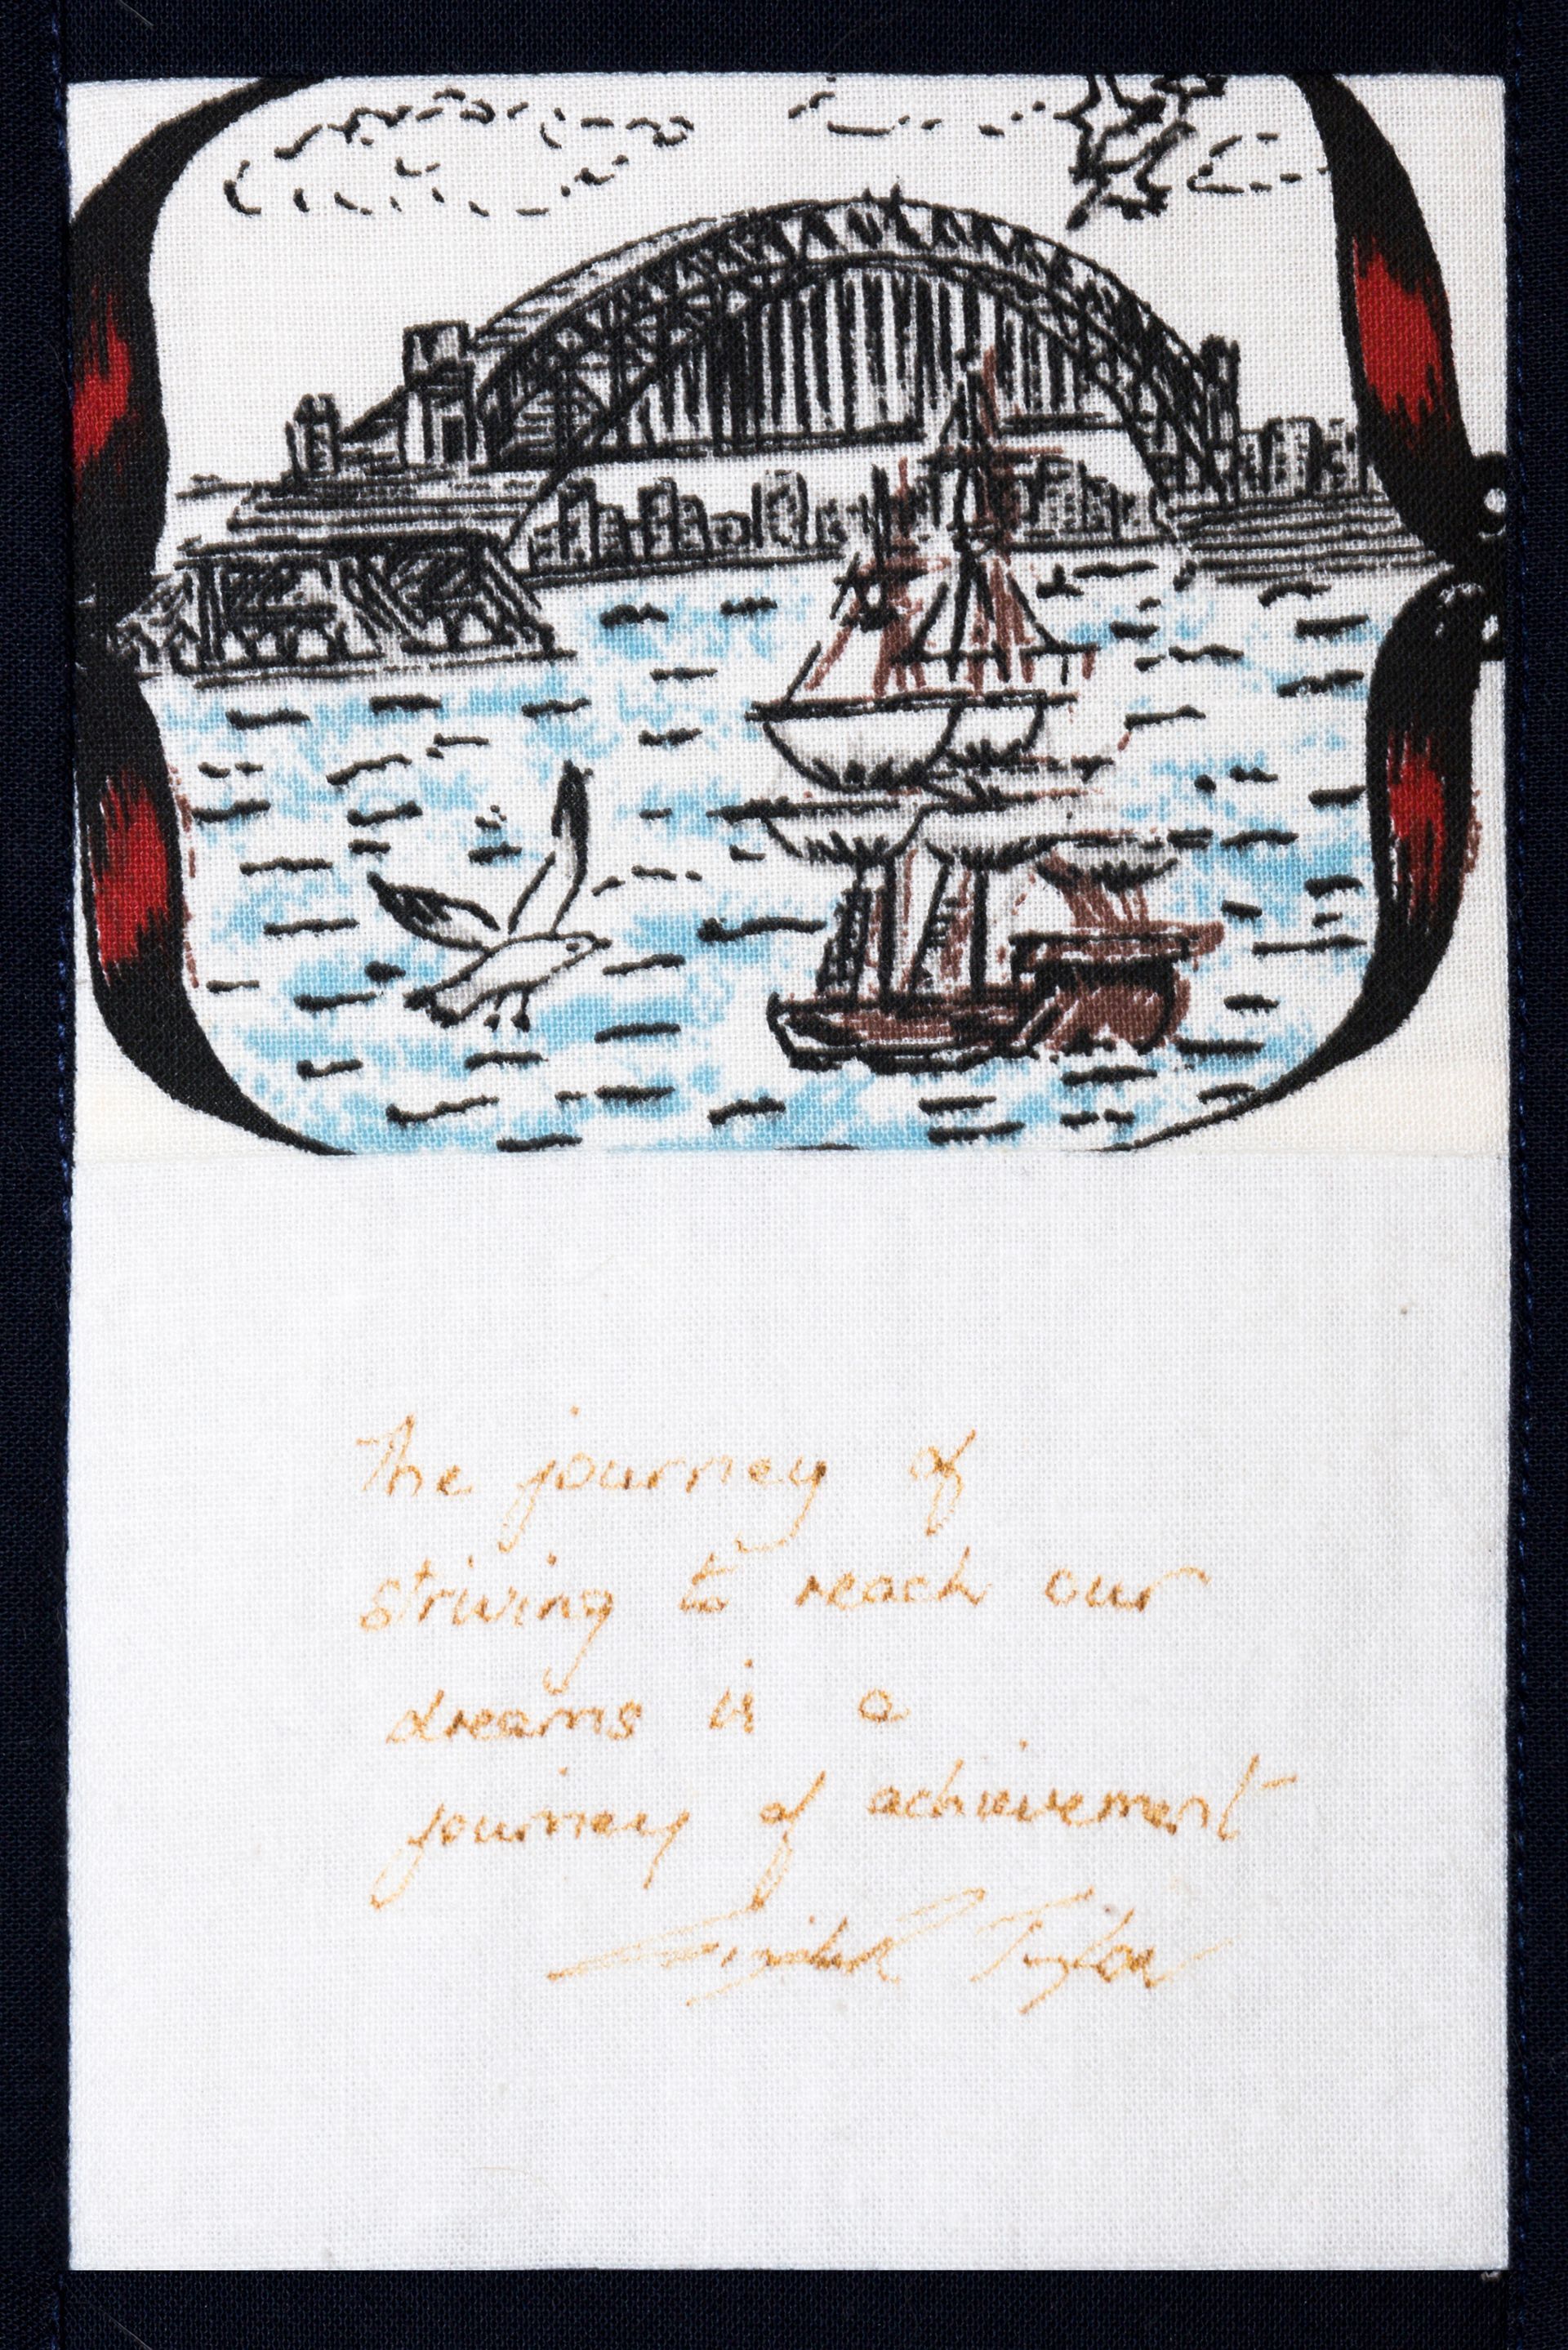 The journey of
striving to reach our
dreams is a
journey of achievement
Taylor